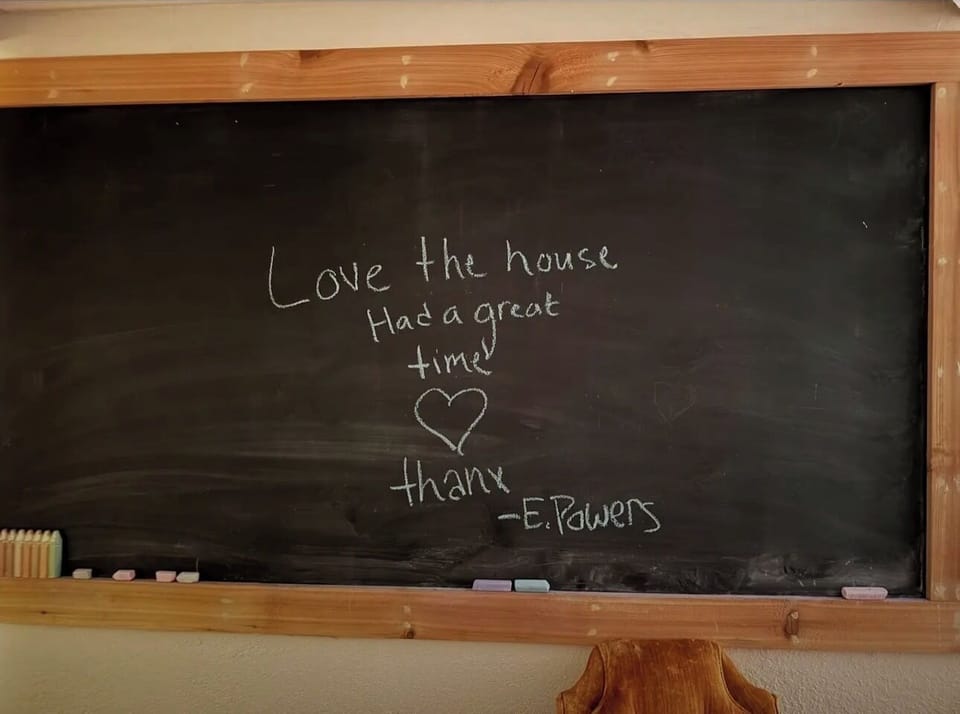 Love the house
Had a great
time
thanx
-E.Powers